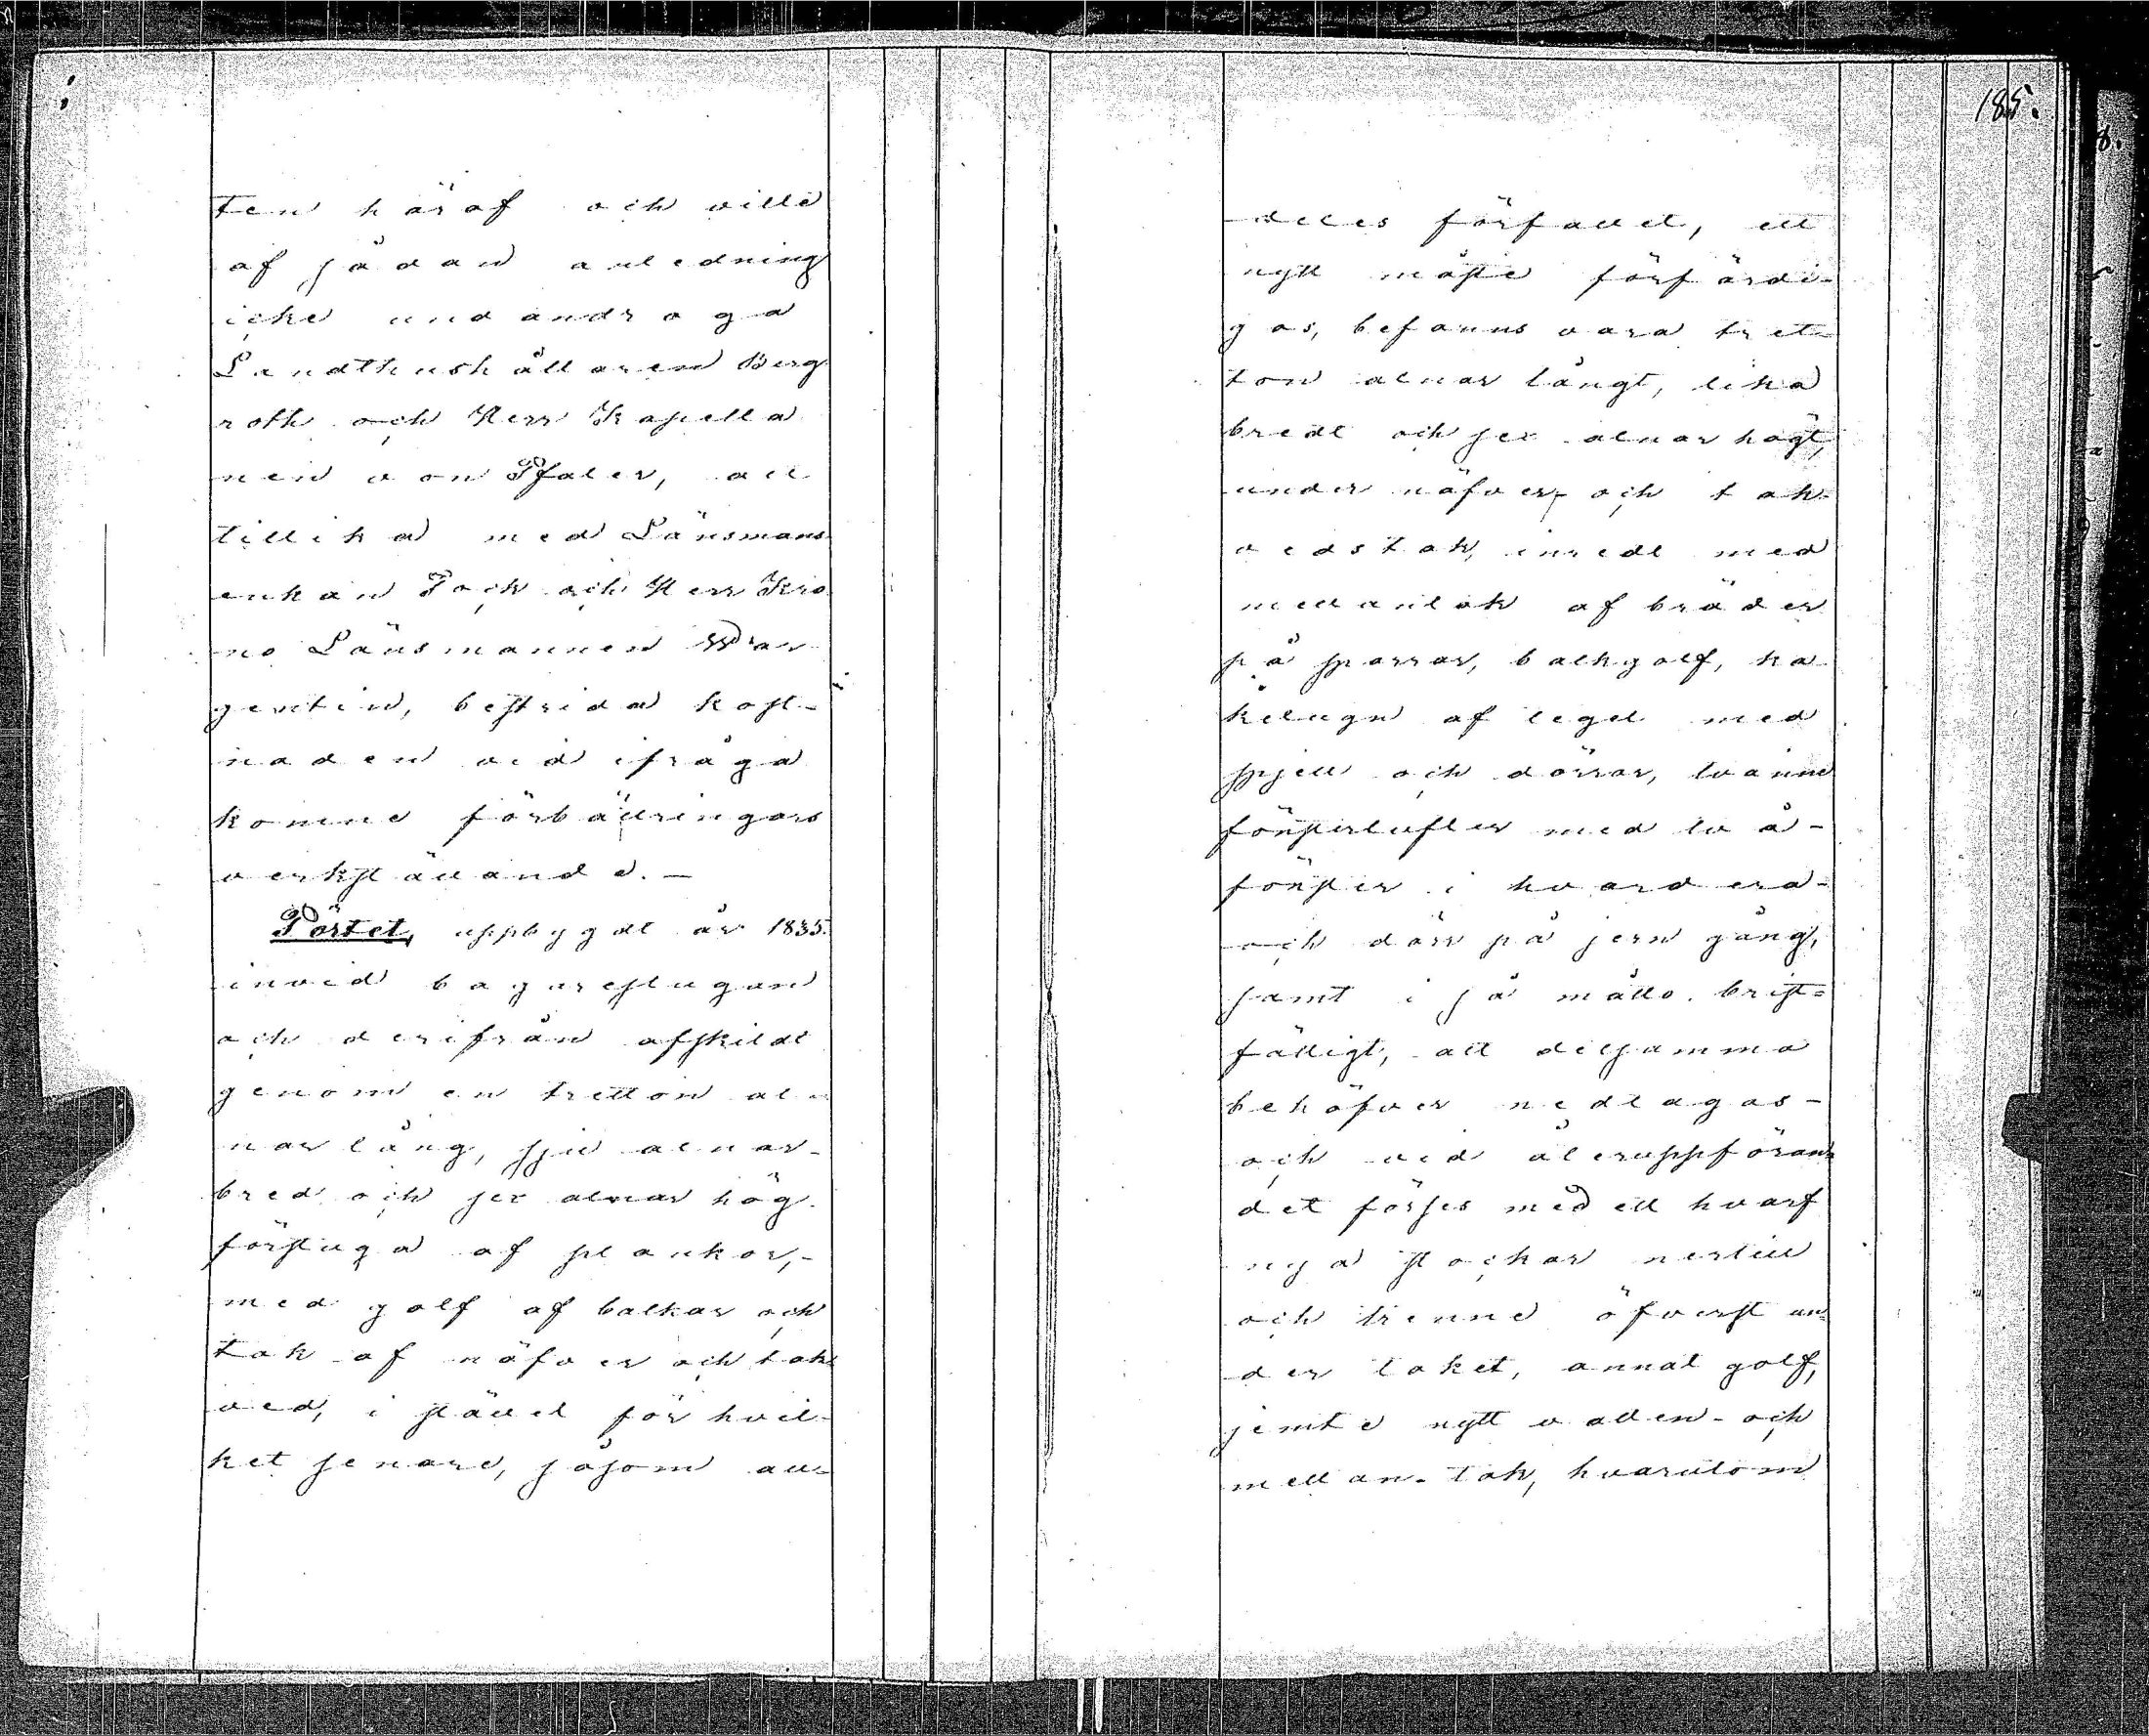 ten häraf och ville
af sådan anledning
icke undandraga
Landthushållaren Berg
roth och Herr Kapella
nen von Pfaler, att
tillika med Länsmans
enkan Pock och Herr Kro
no Länsmannen War
gentin, bestrida kost-
naden vid ifråga
komne förbättringars
verkställande. —
Pörtet, uppbygdt år 1835.
invid bagarestugan
och derifrån afskildt
genom en tretton al
nar lång, sju alnar
bred och sex alnar hög
förstuga af plankor,-
med golf af balkar och
tak af näfver och tak
ved, i stället för hvil-
ket senare, såsom all-
185.
deles förfallet, ett
nytt måste förfärdi-
gas, befanns vara tret-
ton alnar långt, lika
bredt och sex alnar högt,
under näfver- och tak-
vedstak, inredt med
mellantak af bräder
på sparrar, balkgolf, ka
kelugn af tegel med
spjell och dörrar, tvänne
fönsterlufter med två-
fönster i hvardera-
och dörr på jern gång,
samt i så måtto brist=
fälligt, att detsamma
behöfver nedtagas-
och vid återuppföran=
det förses med ett hvarf
nya stockar nertill
och trenne öfverst un=
der taket, annat golf,
jemte nytt vatten- och
mellan-tak, hvarutom